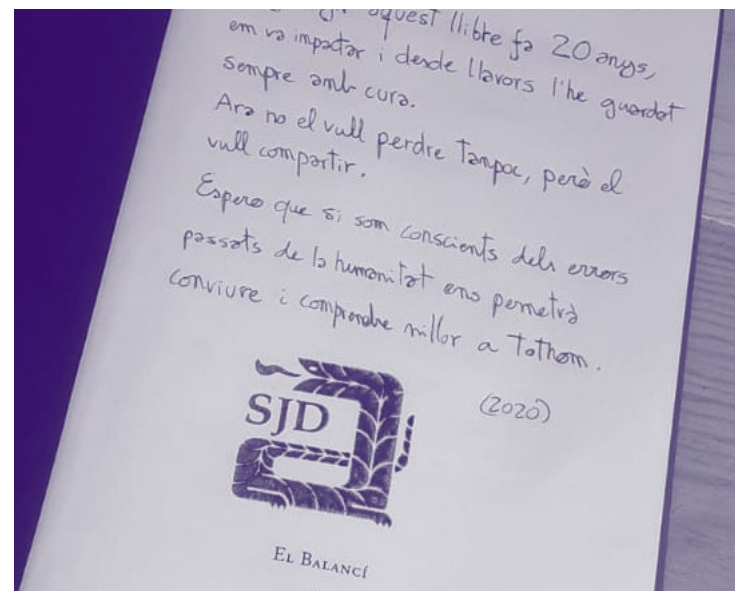 aquest llibre fa 20 anys,
em va impactar i desde llavors l'he guardat
sempre amb cura.
Ara no el vull perdre tanpoc, però el
vull compartir.
Espero que si som conscients dels errors
passats de la humanitat ens permetrà
conviure i comprendre millor a tothom.
(2020)
SJD
EL BALANCÍ